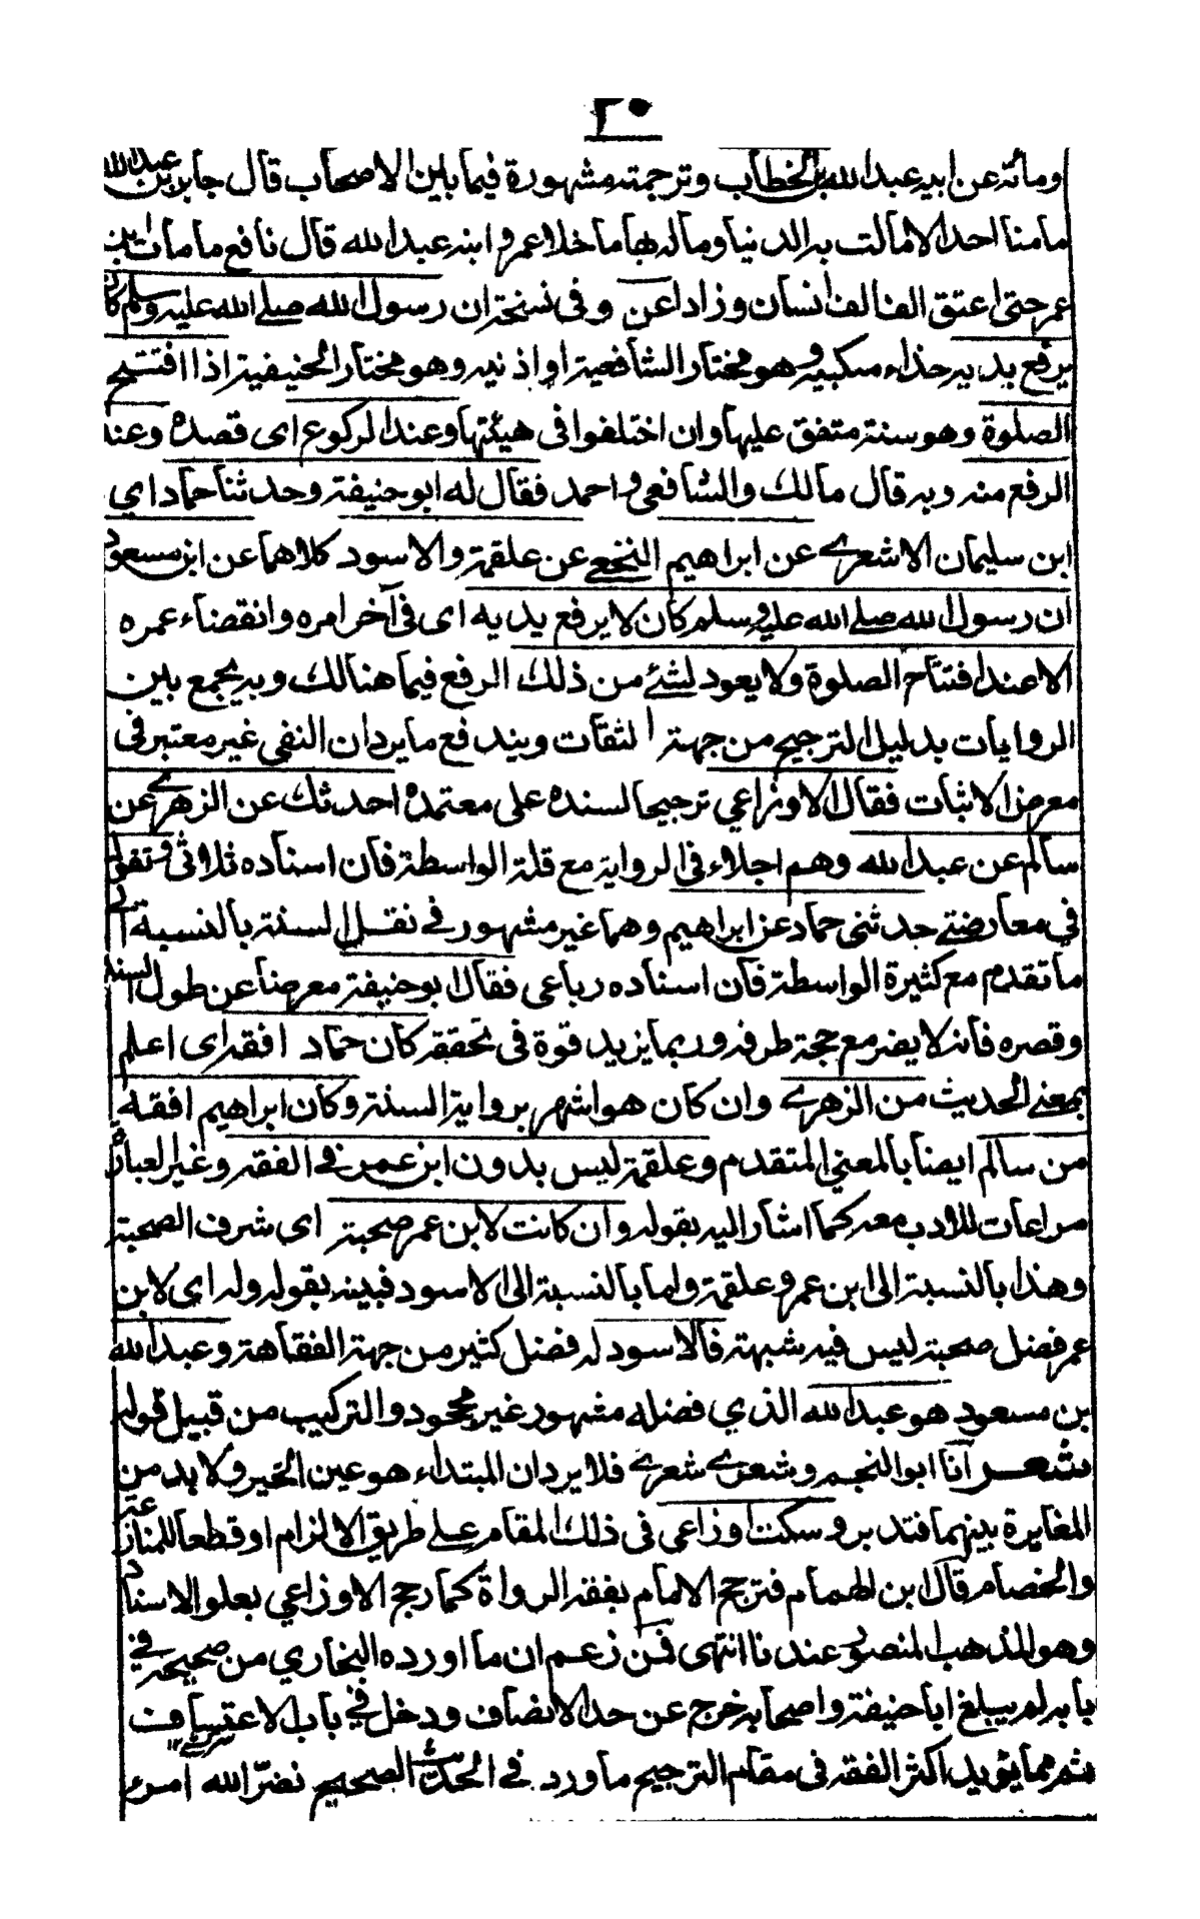 ٢٠
ومائة عن ابيه عبدالله بن الخطاب وترجمته مشهورة فيما بين الاصحاب قال جابر بن عبدالله
مامنا احد الامالت به الدنيا ومال بها ما خلا عمر وابنه عبدالله قال نافع مامات ابن
عمر حتى اعتق الف انسان وزاد عن وفي نسخة ان رسول الله صلے الله عليه وسلم كان
يرفع يديه حذاء منكبيه وهو مختار الشافعية او اذنيه وهو مختار الحنيفية اذا افتتح
الصلوة وهو سنة متفق عليها وان اختلفوا في هيئتها وعند الركوع اى قصده وعند
الرفع منه وبه قال مالك والشافعي واحمد فقال له ابو حنيفة وحدثنا حماد اي
ابن سليمان الاشعرے عن ابراهيم النخعي عن علقمة والاسود كلاهما عن ابن مسعود
ان رسول الله صلے الله عليه وسلم كان لايرفع يديه اى في آخر امره وانقضاء عمره
الا عند افتتاح الصلوة ولا يعود لشئ من ذلك الرفع فيما هنالك وبه يجمع بين
الروايات بدليل الترجيح من جهة الثقات ويندفع ما يرد ان النفي غير معتبر في
معرض الاثبات فقال الاوزاعي ترجيحا لسنده على معتمده احدثك عن الزهرے عن
سالم عن عبدالله وهم اجلاء في الرواية مع قلة الواسطة فان اسناده ثلاثي وتقول
في معارضتي حدثنى حماد عن ابراهيم وهما غير مشهور في نقل السنة بالنسبة الى
ما تقدم مع كثيرة الواسطة فان اسناده رباعى فقال ابو حنيفة معرضا عن طول السند
وقصره فانه لايضر مع حجة طرفه وربما يزيد قوة في تحققه كان حماد افقه اى اعلم
بمعنى الحديث من الزهرے وان كان هو اشهر برواية السنة وكان ابراهيم افقه
من سالم ايضا بالمعنى المتقدم وعلقمة ليس بدون ابن عمر في الفقه وغير العبارة
مراعات للادب معه كما اشار اليه بقوله وان كانت لابن عمر صحبة اى شرف الصحبة
وهذا بالنسبة الى ابن عمر وعلقمة واما بالنسبة الى الاسود فبينه بقوله وله اى لابن
عمر فضل صحبة ليس فيه شبهة فالاسود له فضل كثير من جهة الفقاهة وعبدالله
بن مسعود هو عبدالله الذي فضله مشهور غير مجحود والتركيب من قبيل قوله
شعر انا ابو النجم وشعرے شعرے فلا يرد ان المبتداء هو عين الخبر ولا بد من
المغايرة بينهما فتدبر وسكت اوزاعى في ذلك المقام على طريق الالزام او قطعا للمنازعة
والخصام قال ابن الهمام فترجح الامام بفقه الرواة كما رجح الاوزاعي بعلو الاسناد
وهو المذهب المنصور عندنا انتهى فمن زعم ان ما اورده البخاري من صحيحه في
بابه لم يبلغ ابا حنيفة واصحابه خرج عن حد الانصاف ودخل في باب الاعتساف
ثم مما يؤيد اكثر الفقه في مقام الترجيح ما ورد في الحديث الصحيح نضّر الله امرء